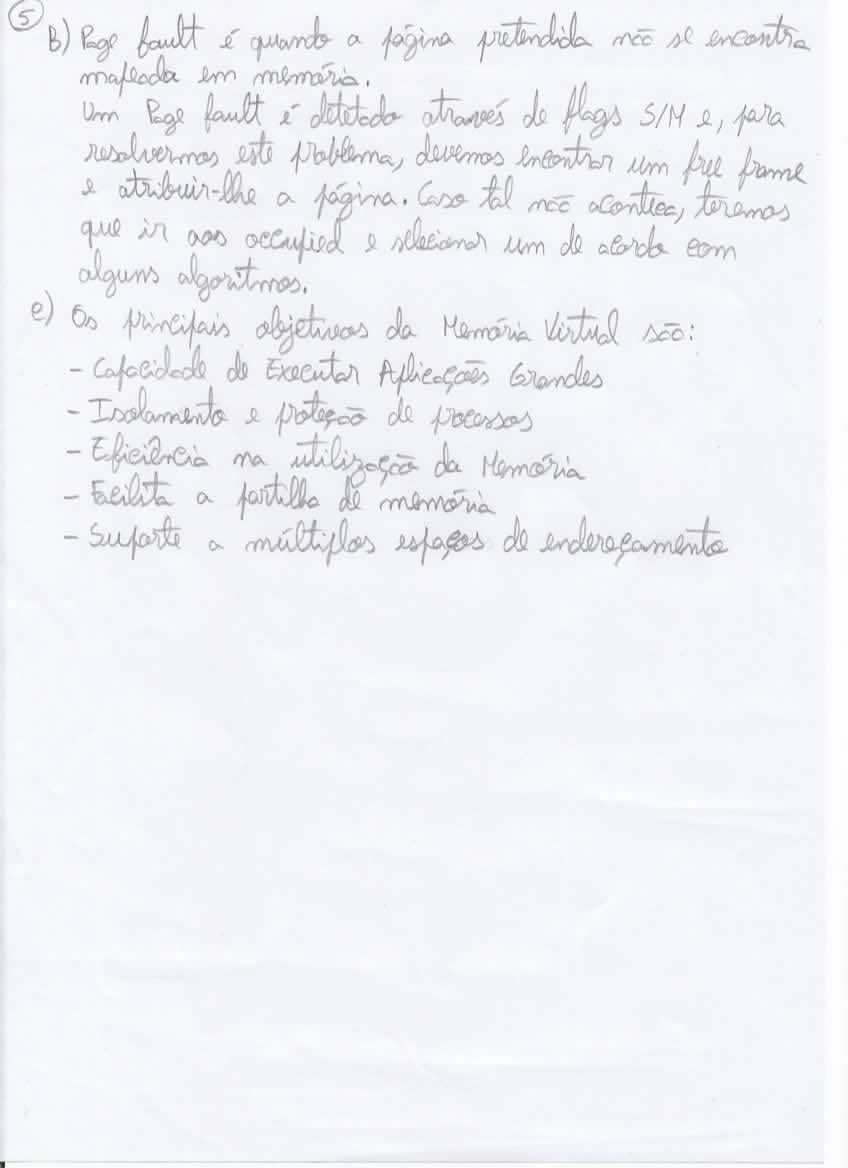 5
B) Page fault é quando a página pretendida não se encontra
mapeada em memória.
Um Page fault é detetado através de flags S/M e, para
resolvermos este problema, devemos encontrar um free frame
e atribuir-lhe a página. Caso tal não aconteça, teremos
que ir aos occupied e selecionar um de acordo com
alguns algoritmos.
e) Os principais objetivos da Memória Virtual são:
- Capacidade de Executar Aplicações Grandes
- Isolamento e proteção de processos
- Eficiência na utilização da Memória
- Facilita a partilha de memória
- Suporte a múltiplos espaços de endereçamento